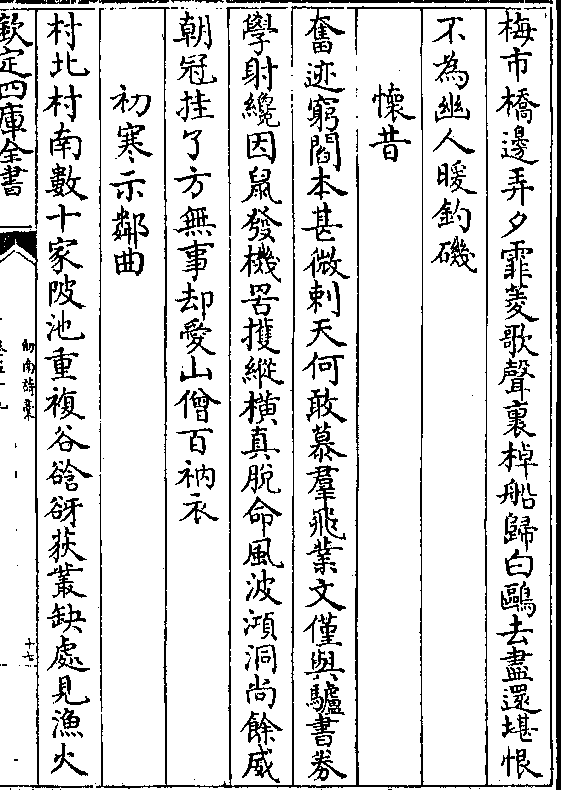 梅市橋邊弄夕霏菱歌聲裏棹船歸白鷗去盡還堪恨
不為幽人暖釣磯
懷昔
奮迹窮閻本甚微刺天何敢慕羣飛業文僅與驢書券
學射纔因鼠發機罟擭縱橫真脫命風波澒洞尚餘威
朝冠挂了方無事却愛山僧百衲衣
初寒示鄰曲
村北村南數十家陂池重複谷谽谺荻叢缺處見漁火
欽定四庫全書
劒南詩稾
十七